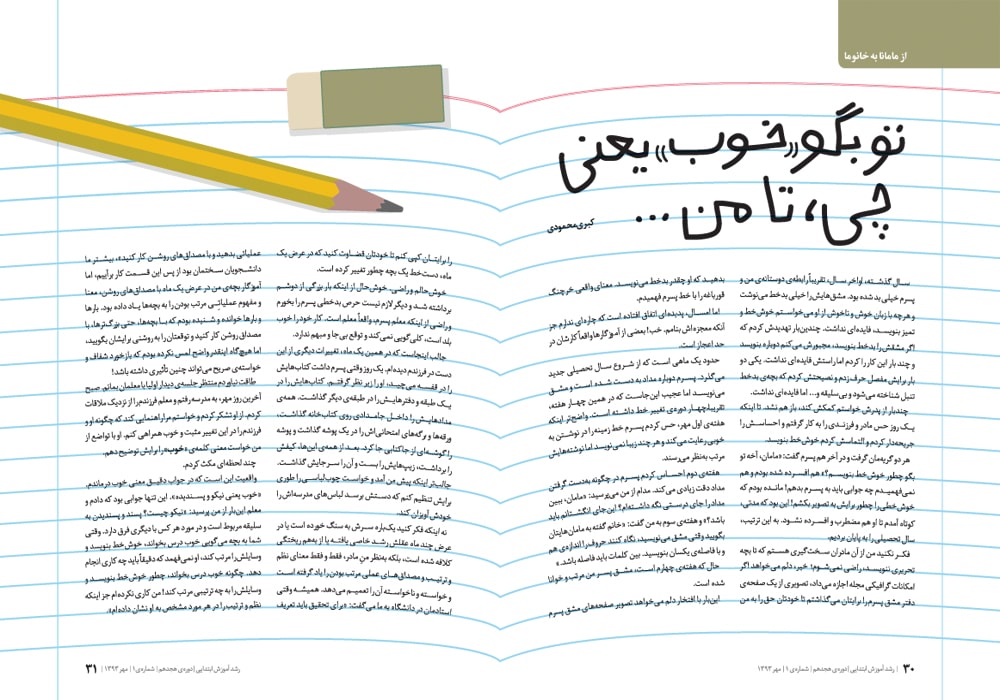 از مامانا به خانوما
تو بگو «خوب» یعنی
چی، تا من ...
کبری محمودی
سال گذشته، اواخر سال، تقریباً رابطه‌ی دوستانه‌ی من و
پسرم خیلی بد شده بود. مشق‌هایش را خیلی بدخط می‌نوشت
و هرچه با زبان خوش و ناخوش از او می‌خواستم خوش‌خط و
تمیز بنویسد، فایده‌ای نداشت. چندین‌بار تهدیدش کردم که
اگر مشقش را بدخط بنویسد، مجبورش می‌کنم دوباره بنویسد
و چند بار این کار را کردم اما راستش فایده‌ای نداشت. یکی دو
بار برایش مفصل حرف زدم و نصیحتش کردم که بچه‌ی بدخط
تنبل شناخته می‌شود و بی‌سلیقه و... اما فایده‌ای نداشت.
چندبار از پدرش خواستم کمکش کند، باز هم نشد. تا اینکه
یک روز حس مادر و فرزندی را به کار گرفتم و احساسش را
جریحه‌دار کردم و التماسش کردم خوش‌خط بنویسد.
هر دو گریه‌مان گرفت و در آخر هم پسرم گفت: «مامان، آخه تو
بگو چطور خوش‌خط بنویسم؟» هم افسرده شده بودم و هم
نمی‌فهمیدم چه جوابی باید به پسرم بدهم! مانده بودم که
خوش‌خطی را چطور برایش به تصویر بکشم! این بود که مدتی،
کوتاه آمدم تا او هم مضطرب و افسرده نشود. به این ترتیب،
سال تحصیلی را به پایان بردیم.
فکر نکنید من از آن مادران سخت‌گیری هستم که تا بچه
تحریری ننویسد، راضی نمی‌شوم؛ خیر، دلم می‌خواهد اگر
امکانات گرافیکی مجله اجازه می‌داد، تصویری از یک صفحه‌ی
دفتر مشق پسرم را برایتان می‌گذاشتم تا خودتان حق را به من
بدهید که او چقدر بدخط می‌نویسد. معنای واقعی خرچنگ
قورباغه را با خط پسرم فهمیدم.
اما امسال، پدیده‌ای اتفاق افتاده است که چاره‌ای ندارم جز
آنکه معجزه‌اش بنامم. خب! بعضی از آموزگارها واقعاً کارشان در
حد اعجاز است.
حدود یک ماهی است که از شروع سال تحصیلی جدید
می‌گذرد. پسرم دوباره مداد به دست شده است و مشق
می‌نویسد اما عجیب این‌جاست که در همین چهار هفته،
تقریباً چهار دوره‌ی تغییر خط داشته است. واضح‌تر اینکه
هفته‌ی اول مهر، حس کردم پسرم خط زمینه را در نوشتن به
خوبی رعایت می‌کند و هر چند زیبا نمی‌نویسد اما نوشته‌هایش
مرتب به‌نظر می‌رسند.
هفته‌ی دوم احساس کردم پسرم در چگونه به‌دست گرفتن
مداد دقت زیادی می‌کند. مدام از من می‌پرسید: «مامان، ببین
مداد را جای درستی نگه داشته‌ام؟ این جای انگشتانم باید
باشد؟» و هفته‌ی سوم به من گفت: «خانم گفته به مامان هایتان
بگویید وقتی مشق می‌نویسید، نگاه کنند حروف را اندازه‌ی هم
و با فاصله‌ی یکسان بنویسید. بین کلمات باید فاصله باشد.»
حال که هفته‌ی چهارم است، مشق پسر من مرتب و خوانا
شده است.
این‌بار با افتخار دلم می‌خواهد تصویر صفحه‌های مشق پسرم
را برایتان کپی کنم تا خودتان قضاوت کنید که در عرض یک
ماه، دست‌خط یک بچه چطور تغییر کرده است.
خوش‌حالم و راضی. خوش‌حال از اینکه بار بزرگی از دوشم
برداشته شد و دیگر لازم نیست حرص بدخطی پسرم را بخورم
و راضی از اینکه معلم پسرم، واقعاً معلم است. کار خود را خوب
بلد است، کلی‌گویی نمی‌کند و توقع بی‌جا و مبهم ندارد.
جالب اینجاست که در همین یک ماه، تغییرات دیگری از این
دست در فرزندم دیده‌ام. یک روز وقتی پسرم داشت کتاب‌هایش
را در قفسه می‌چید، او را زیر نظر گرفتم. کتاب‌هایش را در
یک طبقه و دفترهایش را در طبقه‌ی دیگر گذاشت. همه‌ی
مدادهایش را داخل جامدادی روی کتاب‌خانه گذاشت.
ورق‌ها و برگه‌های امتحانی‌اش را در یک پوشه گذاشت و پوشه
را گوشه‌ای از جاکتابی جا کرد. بعد از همه‌ی این‌ها، کیفش
را برداشت، زیپ‌هایش را بست و آن را سر جایش گذاشت.
جالب‌تر اینکه پیش من آمد و خواست چوب‌لباسی را طوری
برایش تنظیم کنم که دستش برسد لباس‌های مدرسه‌اش را
خودش آویزان کند.
نه اینکه فکر کنید یک‌باره سرش به سنگ خورده است یا در
عرض چند ماه عقلش رشد خاصی یافته یا از به‌هم ریختگی
کلافه شده است، بلکه به‌نظر من مادر، فقط و فقط معنای نظم
و ترتیب و مصداق‌های عملی مرتب بودن را یاد گرفته است
و خواسته و ناخواسته آن را تعمیم می‌دهد. همیشه وقتی
استادمان در دانشگاه به ما می‌گفت: «برای تحقیق باید تعریف
عملیاتی بدهید و با مصداق‌های روشن کار کنید»، بیشتر ما
دانشجویان سختمان بود از پس این قسمت کار برآییم، اما
آموزگار بچه‌ی من در عرض یک ماه با مصداق‌های روشن، معنا
و مفهوم عملیاتی مرتب بودن را به بچه‌ها یاد داده بود. بارها
و بارها خوانده و شنیده بودم که با بچه‌ها، حتی بزرگ‌ترها، با
مصداق روشن کار کنید و توقعتان را به روشنی برایشان بگویید،
اما هیچ‌گاه اینقدر واضح لمس نکرده بودم که بازخورد شفاف و
خواسته‌ی صریح می‌تواند چنین تأثیری داشته باشد!
طاقت نیاوردم منتظر جلسه‌ی دیدار اولیا با معلمان بمانم. صبح
آخرین روز مهر، به مدرسه رفتم و معلم فرزندم را از نزدیک ملاقات
کردم. از او تشکر کردم و خواستم مرا راهنمایی کند که چگونه او و
فرزندم را در این تغییر مثبت و خوب همراهی کنم. او با تواضع از
من خواست معنی کلمه‌ی «خوب» را برایش توضیح دهم.
چند لحظه‌ای مکث کردم.
واقعیت این است که در جواب دقیق معنی خوب درماندم.
«خوب یعنی نیکو و پسندیده.». این تنها جوابی بود که دادم و
معلم این‌بار از من پرسید: «نیکو چیست؟ پسند و پسندیدن به
سلیقه مربوط است و در مورد هر کس با دیگری فرق دارد. وقتی
شما به بچه می‌گویی خوب درس بخواند، خوش‌خط بنویسد و
وسایلش را مرتب کند، او نمی‌فهمد که دقیقاً باید چه کاری انجام
دهد. چگونه خوب درس بخواند، چطور خوش‌خط بنویسد و
وسایلش را به چه ترتیبی مرتب کند! من کاری نکرده‌ام جز اینکه
نظم و ترتیب را در هر مورد مشخص به او نشان داده‌ام».
۳۰ | رشد آموزش ابتدایی | دوره‌ی هجدهم | شماره‌ی ۱ | مهر ۱۳۹۳
رشد آموزش ابتدایی | دوره‌ی هجدهم | شماره‌ی ۱ | مهر ۱۳۹۳ | ۳۱